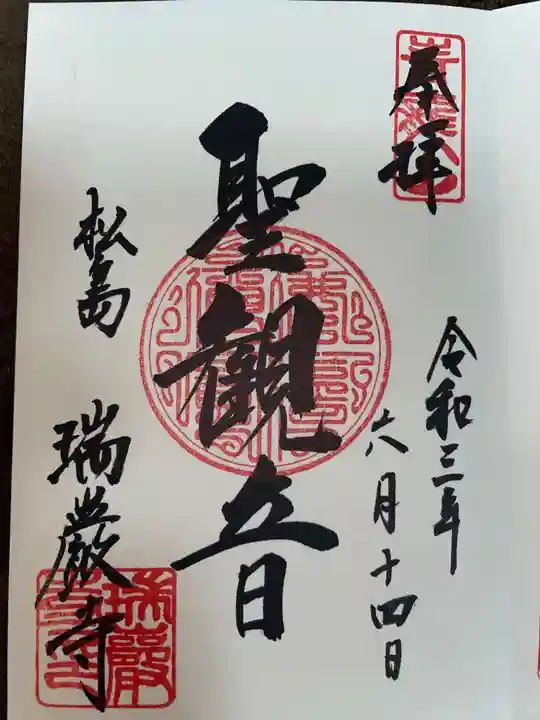 奉拝
令和三年
六月十四日
聖観音
松島
瑞巌寺
瑞巌